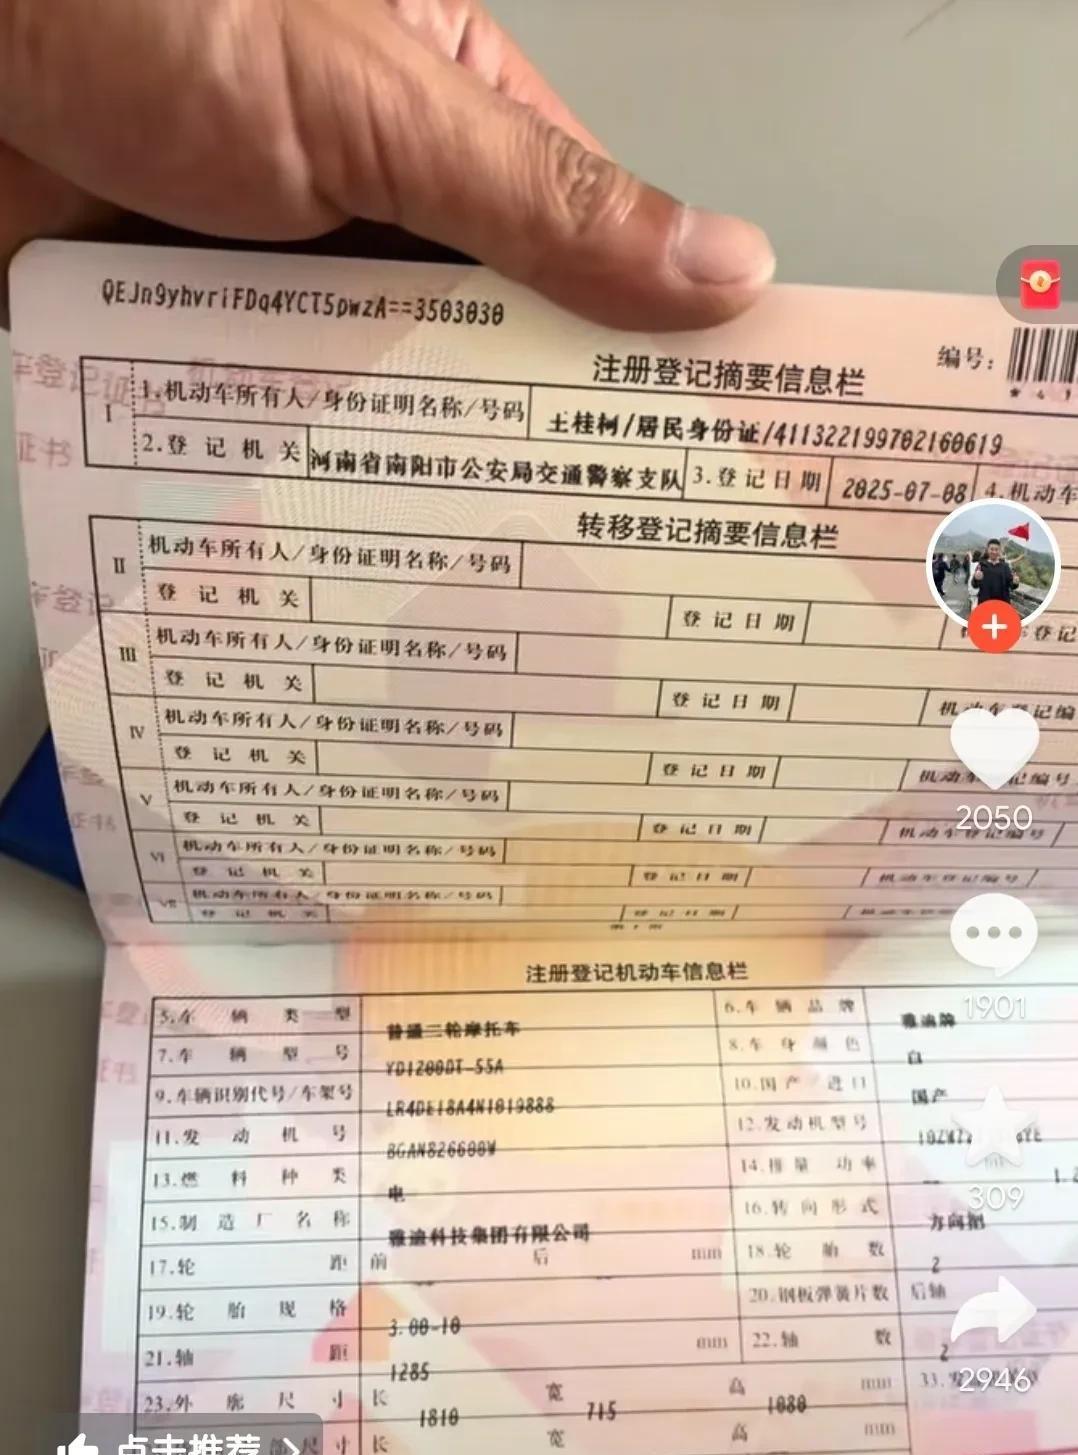 QEJn9yhvriFDq4YCT5pwzA==3503030
注册登记摘要信息栏
编号：
I
1.机动车所有人/身份证明名称/号码
王桂柯/居民身份证/411322199702160619
2.登记机关
河南省南阳市公安局交通警察支队
3.登记日期
2025-07-08
4.机动车
转移登记摘要信息栏
II
机动车所有人/身份证明名称/号码
登记机关
登记日期
III
机动车所有人/身份证明名称/号码
登记机关
登记日期
机动车登记编
IV
机动车所有人/身份证明名称/号码
登记机关
登记日期
机动车登记编号
V
机动车所有人/身份证明名称/号码
登记机关
登记日期
机动车登记编号
VI
机动车所有人/身份证明名称/号码
登记机关
登记日期
机动车登记编号
VII
机动车所有人/身份证明名称/号码
登记机关
登记日期
注册登记机动车信息栏
5.车辆类型
普通二轮摩托车
6.车辆品牌
雅迪牌
7.车辆型号
YD1200DT-55A
8.车身颜色
白
9.车辆识别代号/车架号
10.国产/进口
国产
11.发动机号
12.发动机型号
13.燃料种类
电
14.排量/功率
15.制造厂名称
雅迪科技集团有限公司
16.转向形式
方向把
17.轮距
前
后
mm
18.轮胎数
2
19.轮胎规格
3.00-10
20.钢板弹簧片数
后轴
21.轴距
1285
mm
22.轴数
2
23.外廓尺寸
长
1810
宽
715
高
1080
mm
33.发
长
宽
高
mm
2050
1901
309
2946
点击推荐